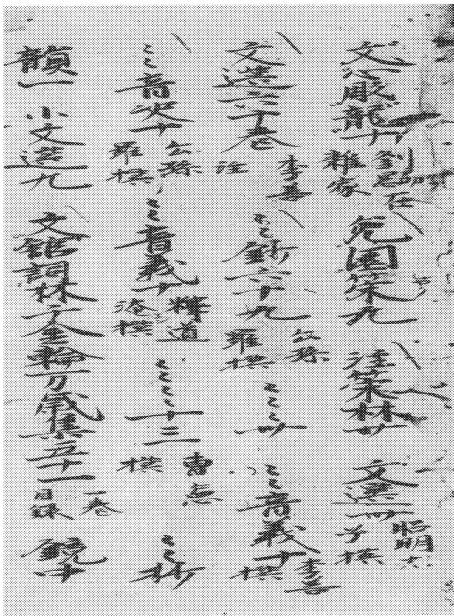 文心雕龍十 劉勰在雜家 兎園策九 注策林廿 文選卅 昭明太子撰
文選六十卷 李善注 〻〻鈔六十九 公孫羅撰 〻〻〻卅 〻〻音義十 李善撰
〻〻音決十 公孫羅撰 〻〻音義十 釋道淹撰 〻〻〻〻十三 曹憲撰 〻〻抄
韻一 小文選九 文舘詞林千金輪万歳集五十一 一卷目録